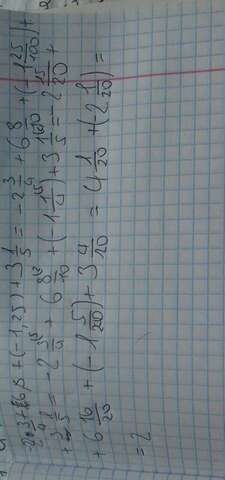 -2 3/4 + 6,8 + (-1,25) + 3 1/5 = -2 3/4 + 6 8/10 + (-1 25/100) +
+ 3 1/5 = -2 3/4 + 6 8/10 + (-1 1/4) + 3 1/5 = -2 15/20 +
+ 6 16/20 + (-1 5/20) + 3 4/20 = 4 1/20 + (-2 1/20) =
= 2